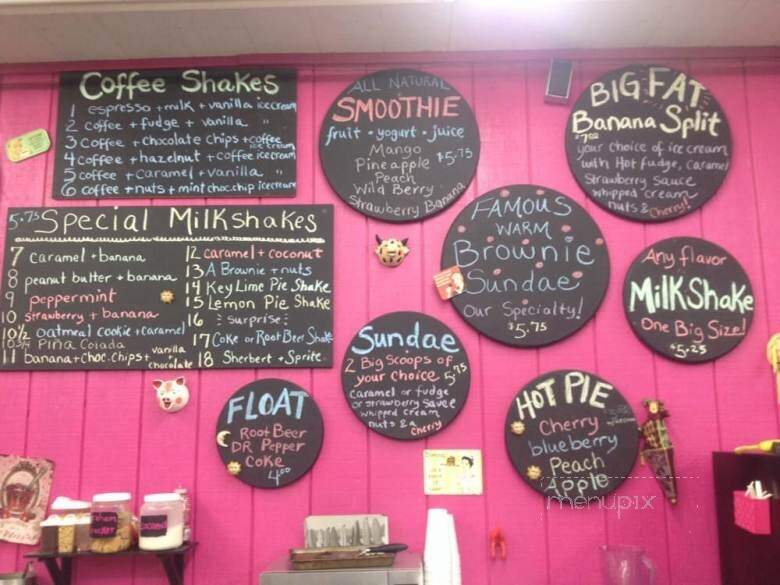 Coffee Shakes
1 espresso + milk + vanilla icecream
2 coffee + fudge + vanilla "
3 coffee + chocolate chips + coffee ice cream
4 coffee + hazelnut + coffee icecream
5 coffee + caramel + vanilla "
6 coffee + nuts + mint choc.chip icecream
5.75 Special Milkshakes
7 caramel + banana
8 peanut butter + banana
9 peppermint
10 strawberry + banana
10½ oatmeal cookie + caramel
10¾ Pina Colada
11 banana + choc.chips + vanilla + chocolate
12 caramel + coconut
13 A Brownie + nuts
14 Key Lime Pie Shake
15 Lemon Pie Shake
16 surprise
17 Coke or Root Beer Shake
18 Sherbert + Sprite
ALL NATURAL
SMOOTHIE
fruit - yogurt - juice
Mango
Pineapple $5.75
Peach
Wild Berry
Strawberry Banana
BIG FAT
Banana Split
$7.00
your choice of ice cream
with Hot fudge, caramel
Strawberry sauce
whipped cream
nuts & Cherry!
FAMOUS
WARM
Brownie
Sundae
Our Specialty!
$5.75
Any flavor
MilkShake
One Big Size!
$5.25
Sundae
2 Big Scoops of
your choice 5.75
caramel or fudge
or strawberry sauce
whipped cream
nuts & a
cherry
FLOAT
Root Beer
DR Pepper
Coke
4.00
HOT PIE
Cherry
blueberry
Peach
Apple
menupix